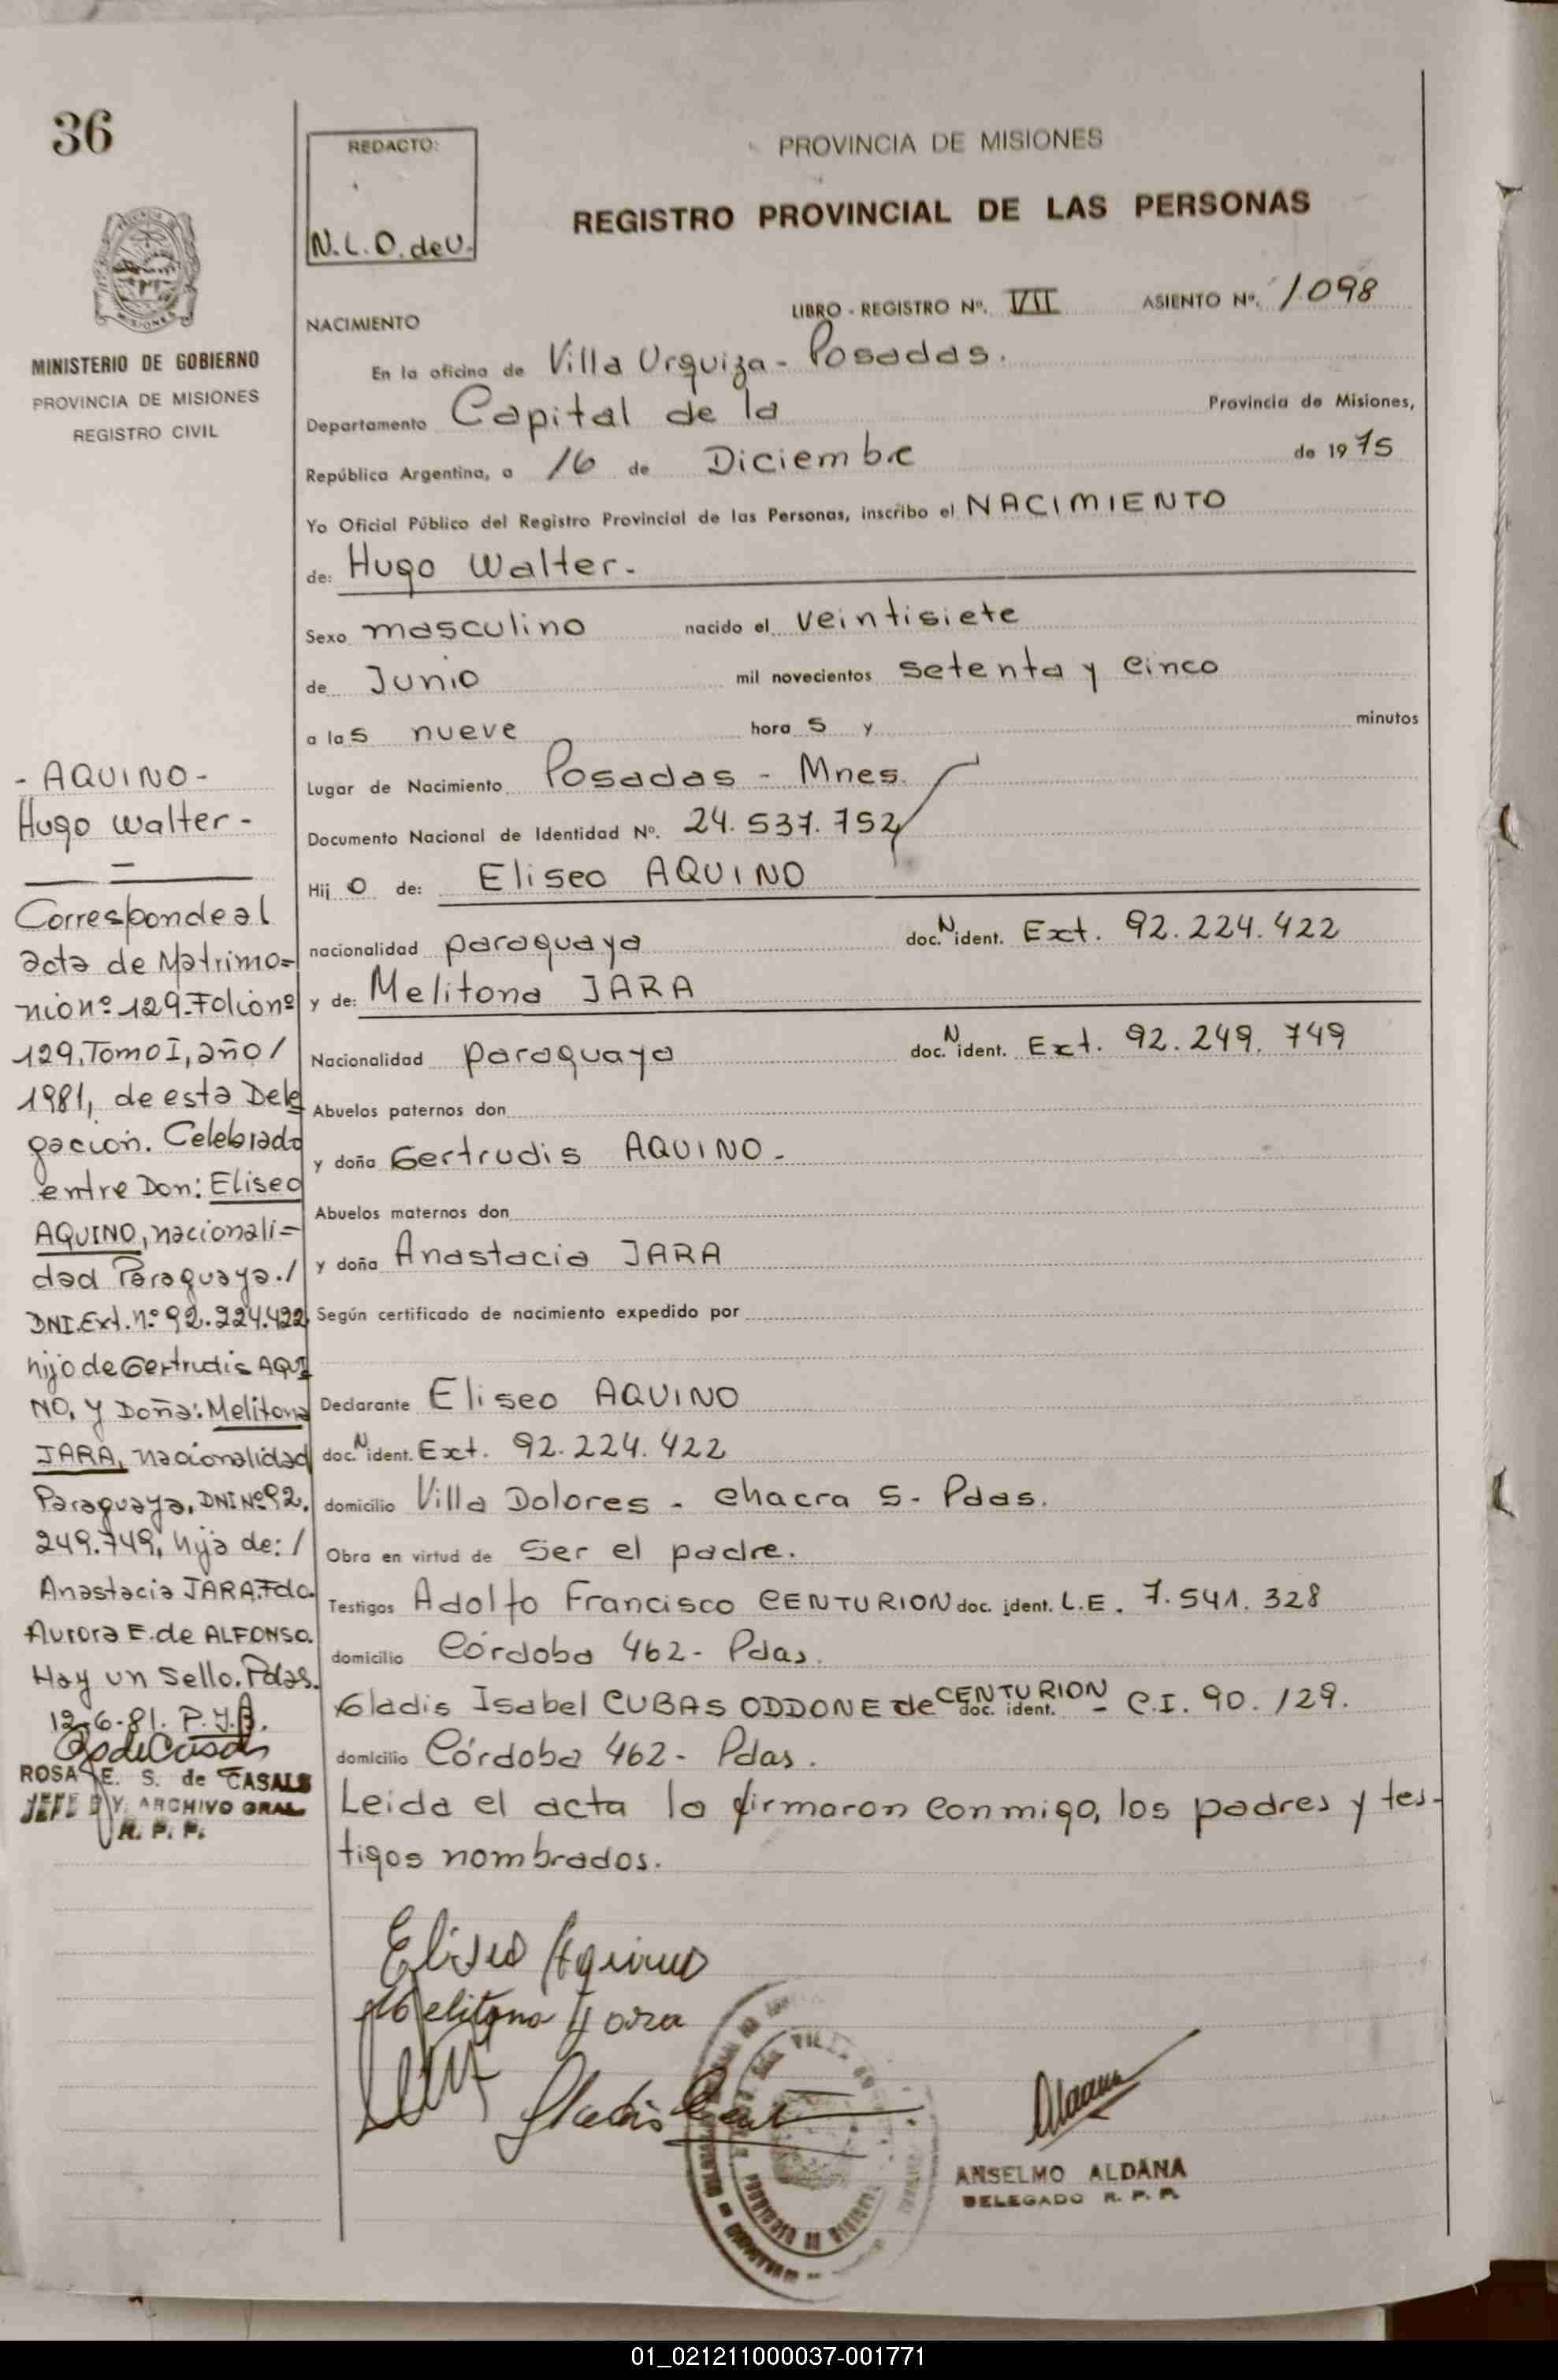 36
REDACTO:
N.L.O. de U.
PROVINCIA DE MISIONES
REGISTRO PROVINCIAL DE LAS PERSONAS
MISIONES
MINISTERIO DE GOBIERNO
PROVINCIA DE MISIONES
REGISTRO CIVIL
LIBRO - REGISTRO Nº. VII ASIENTO Nº. 1.098
NACIMIENTO
En la oficina de Villa Urquiza - Posadas.
Departamento Capital de la Provincia de Misiones,
República Argentina, a 16 de Diciembre de 1975
Yo Oficial Público del Registro Provincial de las Personas, inscribo el NACIMIENTO
de: Hugo Walter.-
Sexo masculino nacido el veintisiete
de Junio mil novecientos setenta y cinco
a las nueve hora s y minutos
Lugar de Nacimiento Posadas - Mnes.
Documento Nacional de Identidad Nº. 24.537.752
Hij o de: Eliseo AQUINO
nacionalidad paraguaya doc. N ident. Ext. 92.224.422
y de: Melitona JARA
Nacionalidad paraguaya doc. N ident. Ext. 92.249.749
Abuelos paternos don
y doña Gertrudis AQUINO -
Abuelos maternos don
y doña Anastacia JARA
Según certificado de nacimiento expedido por
Declarante Eliseo AQUINO
doc. N ident. Ext. 92.224.422
domicilio Villa Dolores - chacra 5 - Pdas.
Obra en virtud de ser el padre.
Testigos Adolfo Francisco CENTURION doc. ident. L.E. 7.541.328
domicilio Córdoba 462 - Pdas.
Gladis Isabel CUBAS ODDONE de CENTURION doc. ident. - C.I. 90.129.
domicilio Córdoba 462 - Pdas.
Leida el acta la firmaron conmigo, los padres y tes-
tigos nombrados.
- AQUINO -
Hugo Walter -
Corresponde al
acta de Matrimo=
nio nº 129. Folio nº
129, Tomo I, año /
1981, de esta Dele
gación. Celebrado
entre Don: Eliseo
AQUINO, nacionali=
dad Paraguaya. /
DNI. Ext. nº 92.224.422
hijo de Gertrudis AQUI
NO, y Doña: Melitona
JARA, nacionalidad
Paraguaya, DNI Nº 92.
249.749, hija de: /
Anastacia JARA. Fdo.
Aurora E. de ALFONSO.
Hay un Sello. Pdas.
12-6-81. P.J.A.
ROSA E. S. de CASALS
JEFE DIV. ARCHIVO GRAL.
R. P. P.
Eliseo Aquino
Melitona Jara
Gladis
ANSELMO ALDANA
DELEGADO R. P. P.
01_021211000037-001771